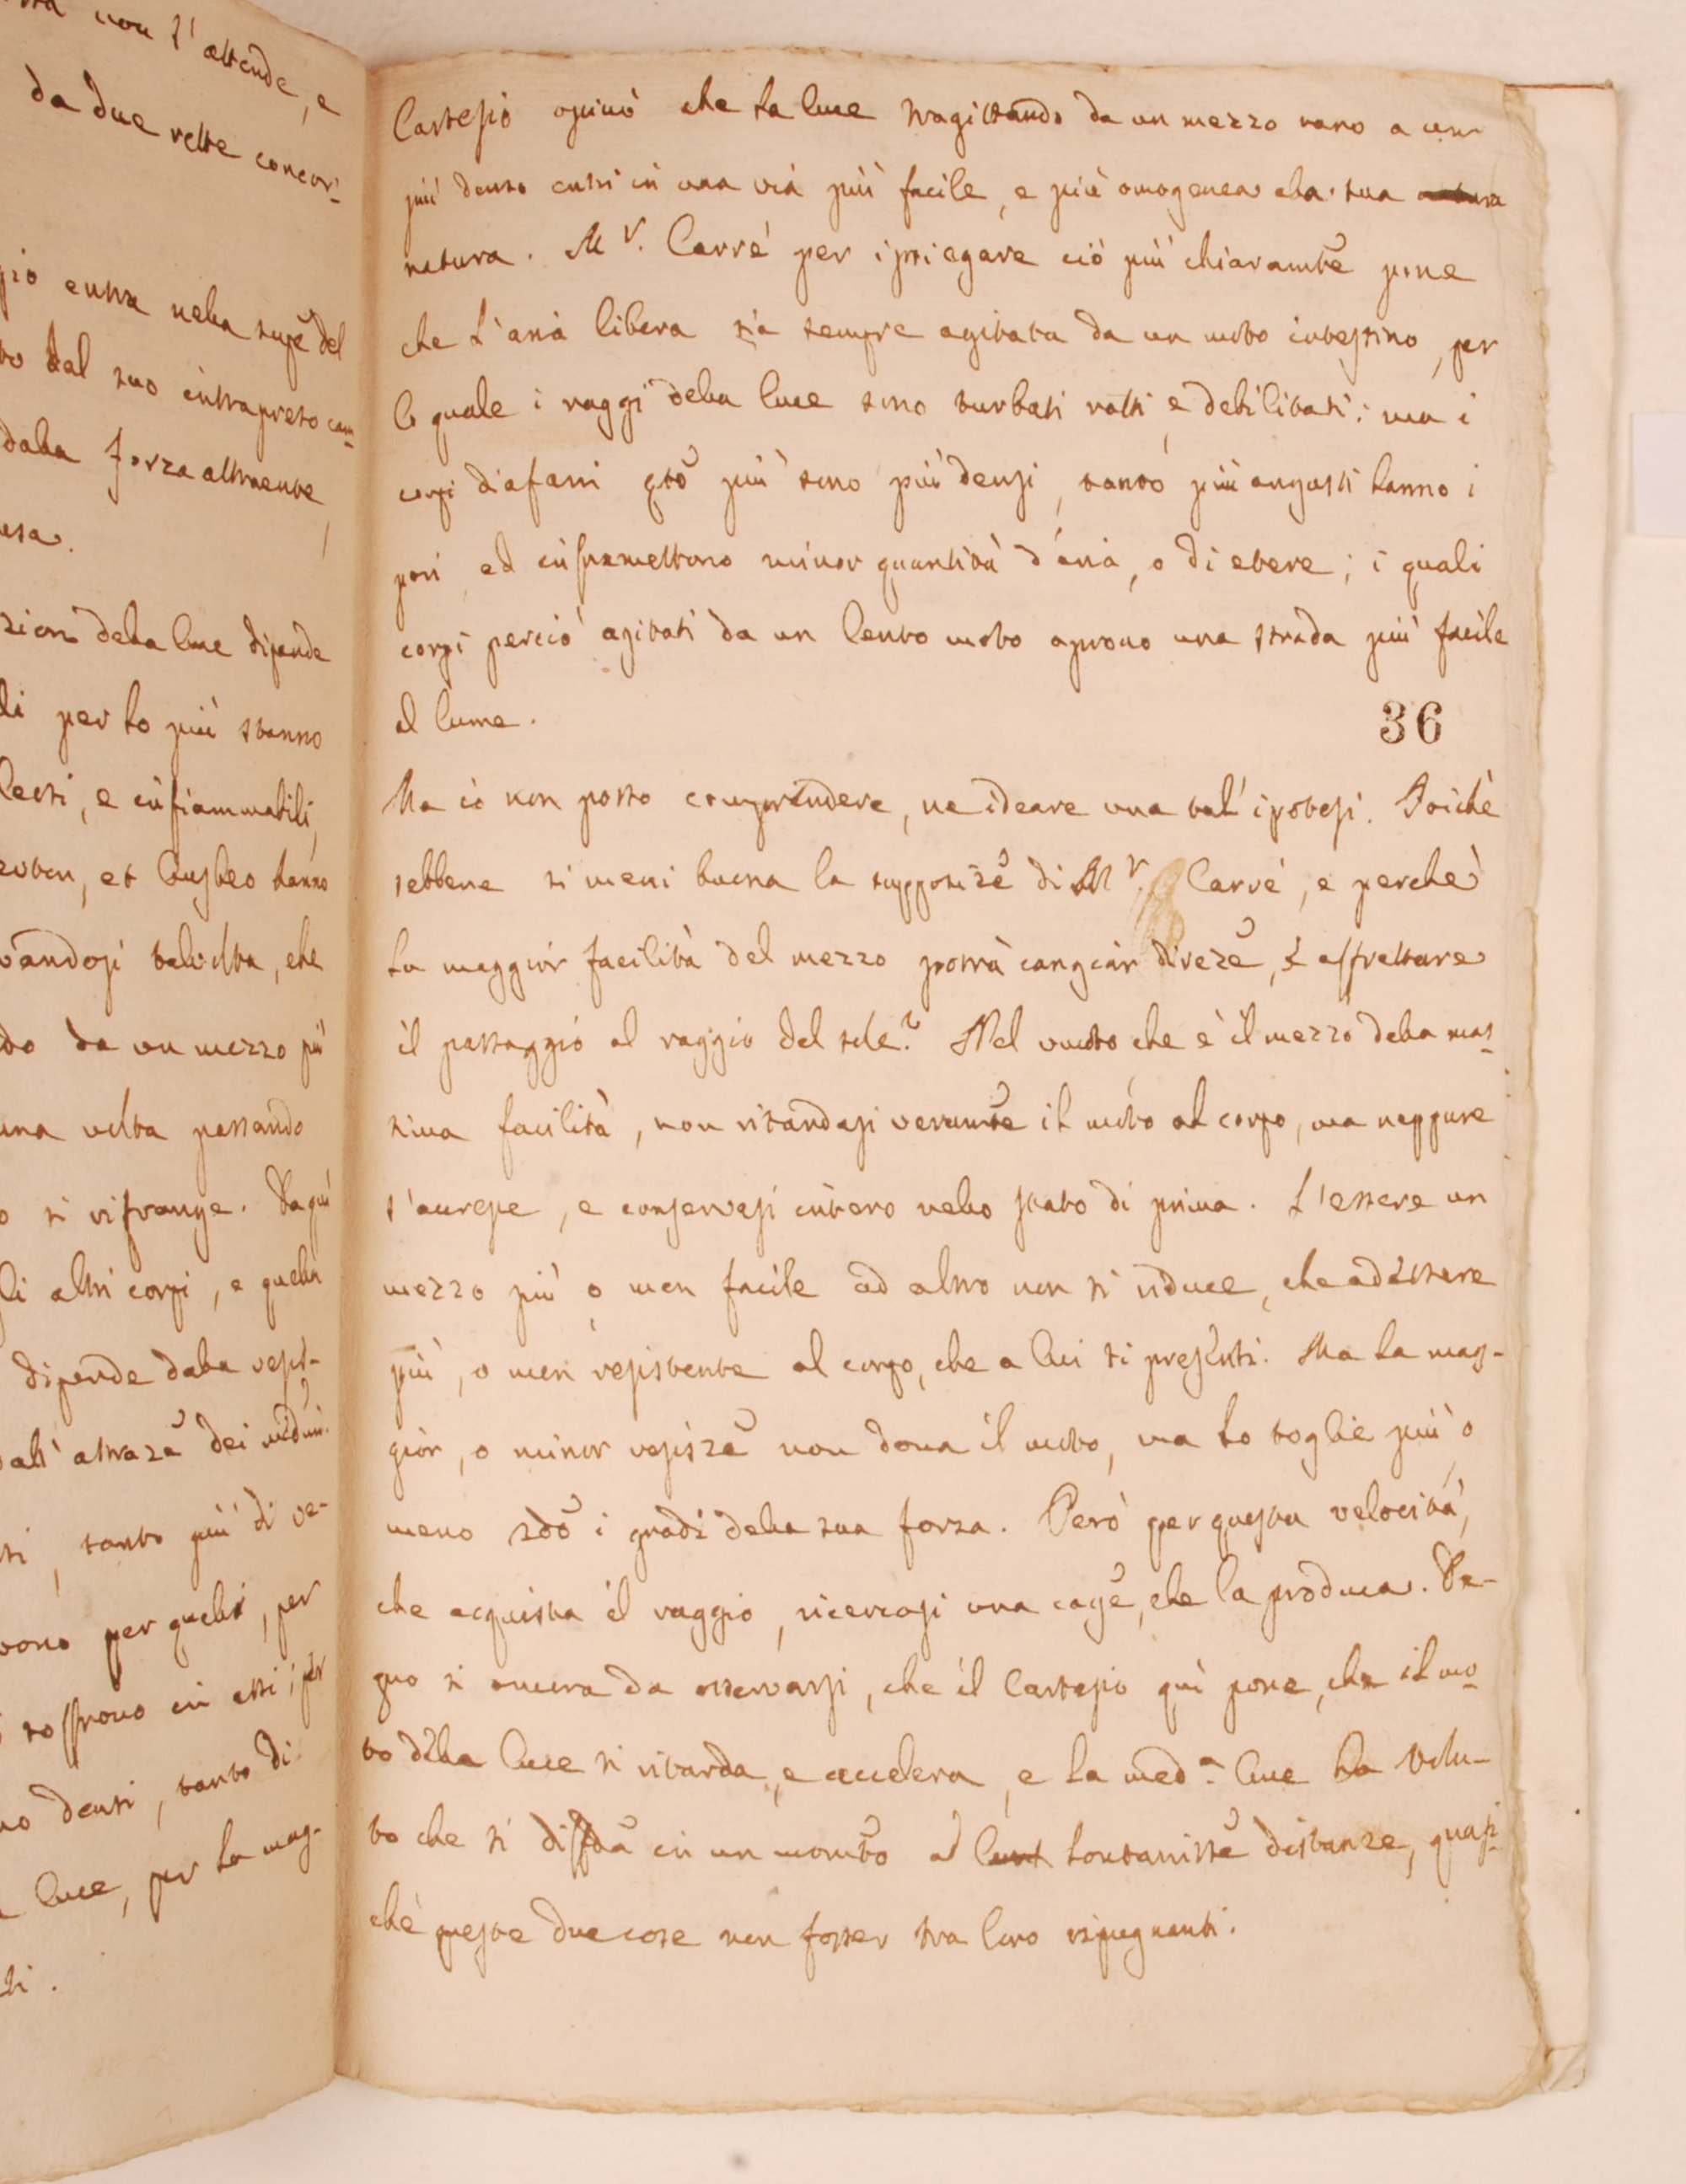 sta non s'attende, e
da due rette concor-
gio entra nella supe del
to dal suo intrapreso cam-
dalla forza attraente,
esa.
zion della luce dipende
li per lo più stanno
lecti, e infiammabili,
et Augsteo hanno
vandosi talvolta, che
do da un mezzo più
una volta passando
o si rifrange. Da qui
li altri corpi, e quella
dipende dalla resis-
all' attraze dei medmi.
ti, tanto più di ve-
vono per quelli, per
soffrono in essi; per
no densi, tanto di
a luce, per la mag-
ti.
Cartesio opinò che la luce tragittando da un mezzo raro a un
più denso entri in una via più facile, e più omogenea alla sua natura
natura. Mr. Carrè per ispiegare ciò più chiaramte pone
che l'aria libera sia sempre agitata da un moto intestino, per
lo quale i raggi della luce sono turbati rotti e debilitati; ma i
corpi diafani qto più sono più densi, tanto più angusti hanno i
pori, ed inframettono minor quantità d'aria, o di etere; i quali
corpi perciò agitati da un lento moto aprono una strada più facile
al lume.
36
Ma io non posso comprendere, ne ideare una tal' ipotesi. Poichè
sebbene si meni buona la supposize di Mr. Carrè, e perchè
la maggior facilità del mezzo potrà cangiar direze, è affrettare
il passaggio al raggio del sole? Nel vuoto che è il mezzo della mas-
sima facilità, non ritardasi verunte il moto al corpo, ma neppure
s'accresce, e conservasi intero nello stato di prima. L'essere un
mezzo più o men facile ad altro non si riduce, che ad essere
più, o men resistente al corpo, che a lui si presenti. Ma la mag-
gior, o minor resisze non dona il moto, ma lo toglie più o
meno 2do i gradi della sua forza. Però per questa velocità,
che acquista il raggio, ricercasi una cage, che la produca. De-
gno si ancora da osservarsi, che il Cartesio quì pone, che il mo-
to della luce si ritarda, e accelera, e la meda luce ha volu-
to che si diffda in un momto a lont lontanisse distanze, quasi-
chè queste due cose non fosser tra loro ripugnanti.